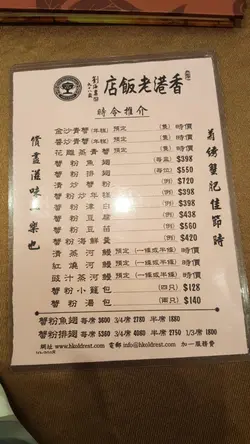 香港老飯店
時令推介
菊綉蟹肥佳節時
價盡滋味一樂也
金沙青蟹(年糕) 預定 (隻) 時價
醬炒青蟹(年糕) 預定 (隻) 時價
花雕蒸青蟹 預定 (隻) 時價
蟹粉魚翅 (每盅) $398
蟹粉排翅 (每位) $550
清炒蟹粉 (例) $720
蟹粉炒年糕 (例) $388
蟹粉津白 (例) $388
蟹粉豆腐 (例) $438
蟹粉豆苗 (例) $500
蟹粉海鮮羹 $420
清蒸河鰻 預定 (一條或半條) 時價
紅燒河鰻 預定 (一條或半條) 時價
豉汁蒸河鰻 預定 (一條或半條) 時價
蟹粉小籠包 (四只) $128
蟹粉湯包 (兩只) $140
蟹粉魚翅 每席 3600 3/4席 2780 半席 1880
蟹粉排翅 每席 5360 3/4席 4080 半席 2750 1/3席 1800
網址 www.hkoldrest.com 電郵 info@hkoldrest.com 加一服務費